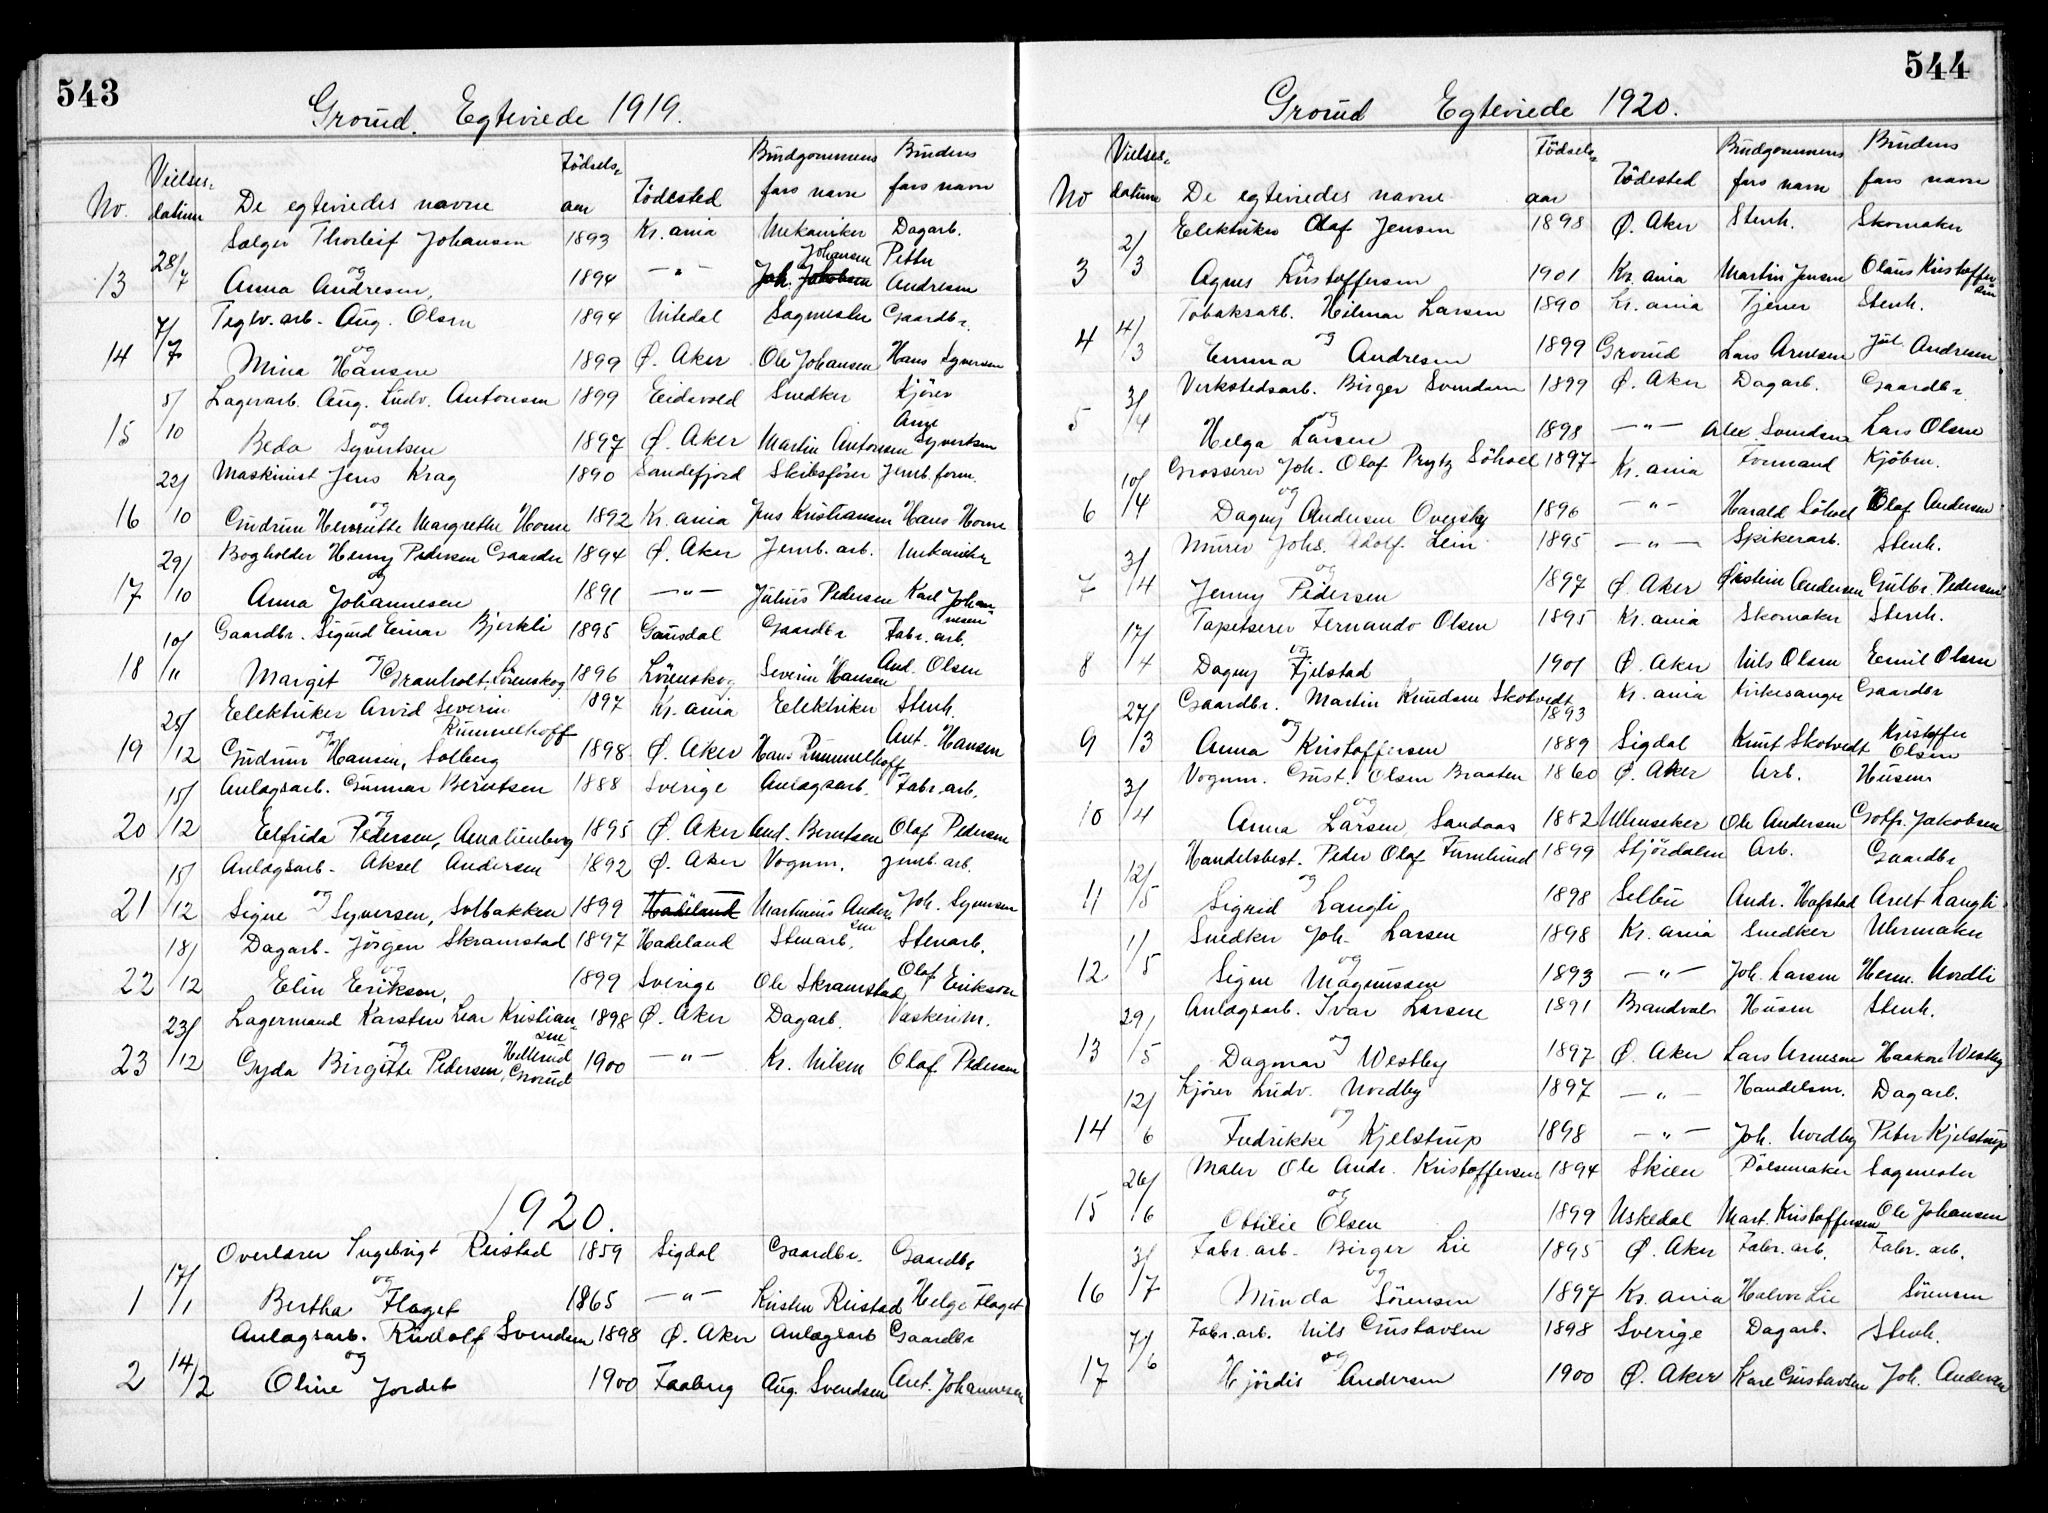 543
Grorud. Egteviede 1919.
No. Vielses- datum De egteviedes navne Fødsels- aar Fødested Brudgommens fars navn Brudens fars navn
Sælger Thorleif Johansen 1893 Kr.ania Mekaniker Dagarb.
13 28/7 og Johansen Petter
Anna Andresen, 1894 —"— Joh. Jakobsen Andresen
Teglv.arb. Aug. Olsen 1894 Nitedal Sagmester Gaardbr.
14 7/7 og
Mina Hansen 1899 Ø. Aker Ole Johansen Hans Syversen
Lagerarb. Aug. Ludv. Antonsen 1899 Eidsvold Snedker Kjører
15 5/10 og Arne
Beda Syvertsen 1897 Ø. Aker Martin Antonsen Syvertsen
Maskinist Jens Krag 1890 Sandefjord Skibsfører Jernb.form.
16 22/10 og
Gudrun Henriette Margrethe Horne 1892 Kr.ania Jens Kristiansen Hans Horne
Bogholder Henry Pedersen Gaarder 1894 Ø. Aker Jernb.arb. Mekaniker
17 29/10 og
Anna Johannesen 1891 —"— Julius Pedersen Karl Johannesen
Gaardbr. Sigurd Einar Bjerkli 1895 Gausdal Gaardbr Fabr.arb.
18 10/11 og
Margit Granholt, Lørenskog 1896 Lørenskog Severin Hansen And. Olsen
Elektriker Arvid Severin Rummelhoff 1897 Kr.ania Elektriker Stenh.
19 25/12 og
Gudrun Hansen, Solberg 1898 Ø. Aker Hans Rummelhoff Ant. Hansen
Anlagsarb. Gunnar Berntsen 1888 Sverige Anlagsarb. Fabr.arb.
20 15/12 og
Elfrida Pedersen, Amalienborg 1895 Ø. Aker And. Berntsen Olaf Pedersen
Anlagsarb. Aksel Andersen 1892 Ø. Aker Vognm. Jernb.arb.
21 15/12 Signe og Syversen, Solbakken 1899 Hadeland Martinius Andersen Joh. Syversen
Dagarb. Jørgen Skramstad 1897 Hadeland Stenarb. Stenarb.
22 18/12 og
Elin Erikson, 1899 Sverige Ole Skramstad Olaf Erikson
Lagermand Karsten Lear Kristiansen 1898 Ø. Aker Dagarb. Vaskerim.
23 23/12 og
Gyda Birgitte Pedersen, Hellerud Grorud 1900 —"— Kr. Nilsen Olaf Pedersen
1920.
Overlærer Ingebrigt Reistad 1859 Sigdal Gaardbr. Gaardbr
1 17/1 og
Bertha Flaget 1865 —"— Kristen Reistad Helge Flaget
Anlagsarb. Rudolf Svendsen 1898 Ø. Aker Anlagsarb Gaardbr
2 14/2 og
Oline Jordet 1900 Faaberg Aug. Svendsen Ant. Johannesen
544
Grorud Egteviede 1920.
No Vielses- datum De egteviedes navne Fødsels- aar Fødested Brudgommens fars navn Brudens fars navn
Elektriker Olaf Jensen 1898 Ø. Aker Stenh. Skomaker
3 2/3 og
Agnes Kristoffersen 1901 Kr.ania Martin Jensen Olaus Kristoffersen
Tobaksarb. Hilmar Larsen 1890 Kr.ania Tjener Stenh.
4 4/3 og
Emma Andresen 1899 Grorud Lars Arnesen Jul. Andresen
Verkstedsarb. Birger Svendsen 1899 Ø. Aker Dagarb. Gaardbr
5 3/4 og
Helga Larsen 1898 —"— Alex Svendsen Lars Olsen
Grosserer Joh. Olaf Prytz Sölvoll 1897 Kr.ania Formand Kjøbm.
6 10/4 og
Dagny Andersen Oversby 1896 —"— Harald Sölvoll Olaf Andersen
Murer Johs. Adolf. Lein 1895 —"— Spikerarb. Stenh.
7 3/4 og
Jenny Pedersen 1897 Ø. Aker Øistein Andersen Gulbr. Pedersen
Tapetserer Fernando Olsen 1895 Kr.ania Skomaker Stenh.
8 17/4 og
Dagny Fjelstad 1901 Ø. Aker Nils Olsen Emil Olsen
Gaardbr. Martin Knudsen Skotvedt 1893 Kr.ania Kirkesanger Gaardbr
9 27/3 og
Anna Kristoffersen 1889 Sigdal Knut Skotvedt Kristoffer Olsen
Vognm. Gust. Olsen Braaten 1860 Ø. Aker Arb. Husem
10 3/4 og
Anna Larsen Sandaas 1882 Ullensaker Ole Andersen Gotfr. Jakobsen
Handelsbest. Peder Olaf Furulund 1899 Stjørdalen Arb. Gaardbr
11 12/5 og
Sigrid Langli 1898 Selbu Andr. Hofstad Arnt Langli
Snedker Joh. Larsen 1898 Kr.ania Snedker Uhrmaker
12 1/5 og
Signe Magnussen 1893 —"— Joh. Larsen Herm. Nordli
Anlagsarb. Ivar Larsen 1891 Brandval Husm Stenh.
13 29/5 og
Dagmar Westby 1897 Ø. Aker Lars Arnesen Haakon Westby
Kjører Ludv. Nordby 1897 —"— Handelsm. Dagarb.
14 12/6 og
Fredrikke Kjelstrup 1898 —"— Joh. Nordby Peter Kjelstrup
Maler Ole Andr. Kristoffersen 1894 Skien Pølsemaker Sagmester
15 26/6 og
Ottilie Olsen 1899 Uskedal Mart. Kristoffersen Ole Johansen
Fabr.arb. Birger Lie 1895 Ø. Aker Fabr.arb. Fabr.arb.
16 3/7 og
Minda Sørensen 1897 Kr.ania Halvor Lie Sørensen
Fabr.arb. Nils Gustavsen 1898 Sverige Dagarb. Stenh.
17 7/6 og
Hjørdis Andersen 1900 Ø. Aker Karl Gustavsen Joh. Andersen